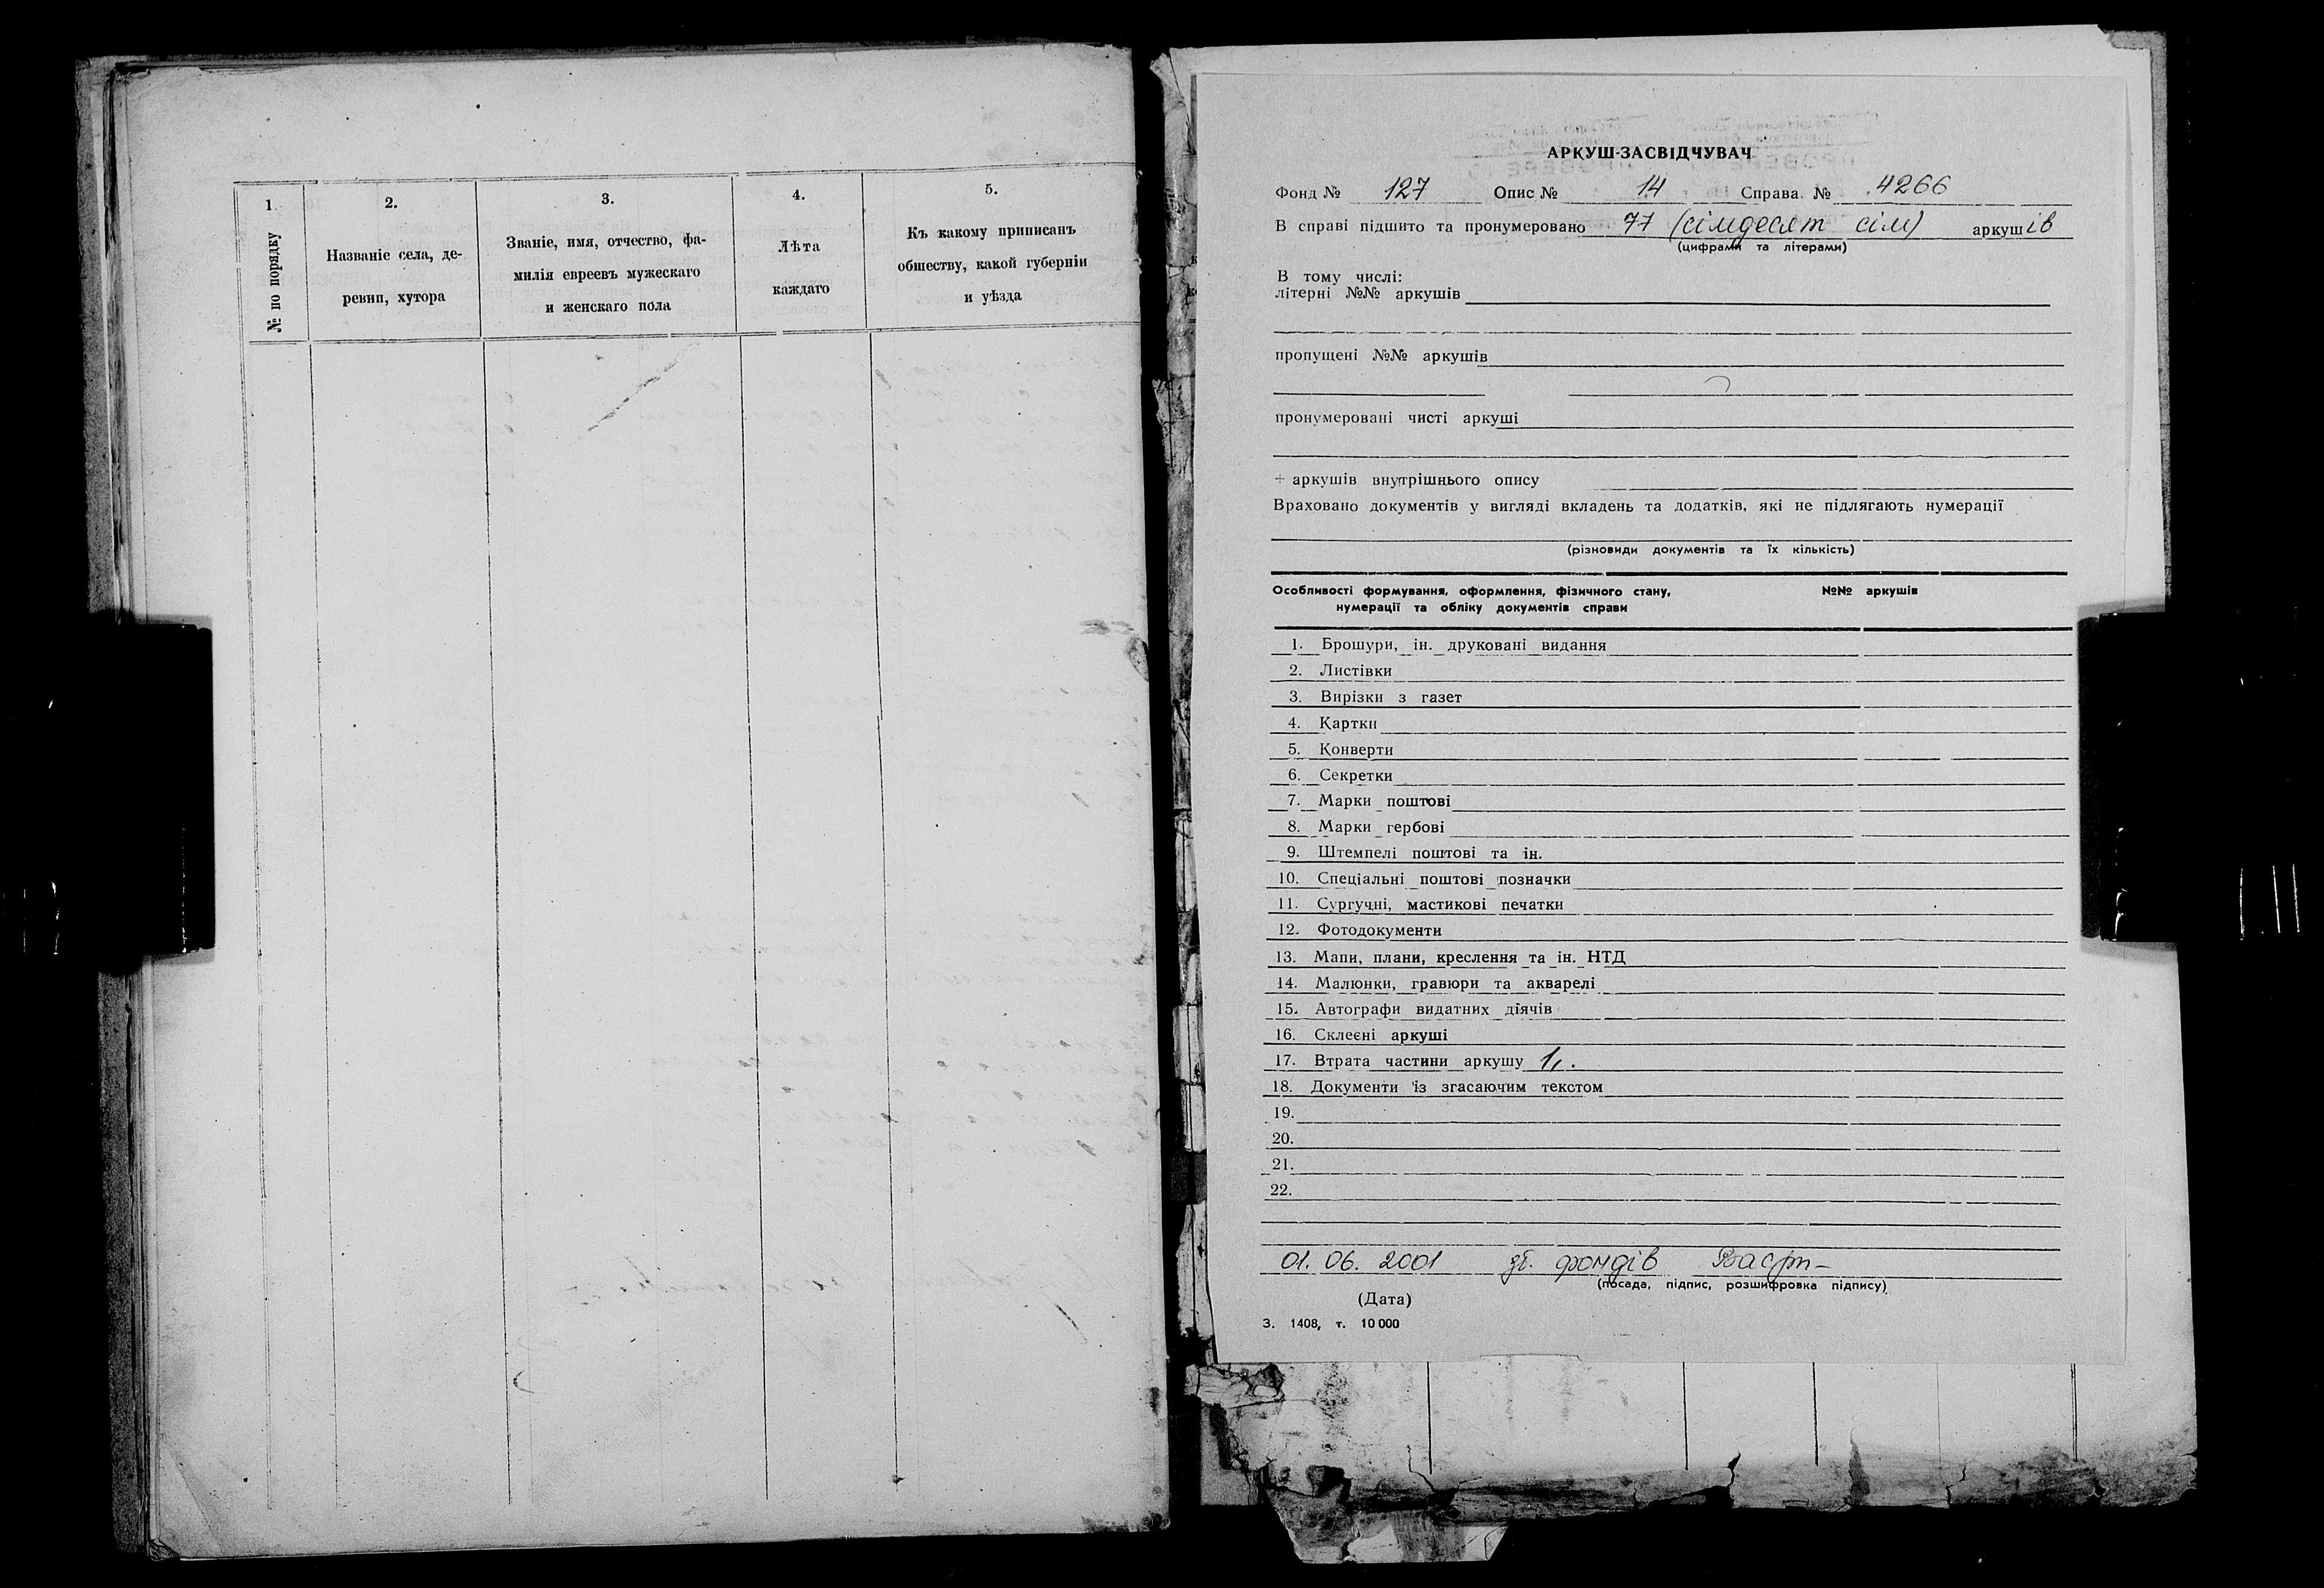 1.
№ по порядку
2.
Названіе села, де-
ревни, хутора
3.
Званіе, имя, отчество, фа-
милія евреевъ мужескаго
и женскаго пола
4.
Лѣта
каждаго
5.
Къ какому приписанъ
обществу, какой губерніи
и уѣзда
АРКУШ-ЗАСВІДЧУВАЧ
Фонд № 127 Опис № 14 Справа № 4266
В справі підшито та пронумеровано 77 (сімдесят сім) аркушів
(цифрами та літерами)
В тому числі:
літерні №№ аркушів
пропущені №№ аркушів
пронумеровані чисті аркуші
+ аркушів внутрішнього опису
Враховано документів у вигляді вкладень та додатків, які не підлягають нумерації
(різновиди документів та їх кількість)
Особливості формування, оформлення, фізичного стану, №№ аркушів
нумерації та обліку документів справи
1. Брошури, ін. друковані видання
2. Листівки
3. Вирізки з газет
4. Картки
5. Конверти
6. Секретки
7. Марки поштові
8. Марки гербові
9. Штемпелі поштові та ін.
10. Спеціальні поштові позначки
11. Сургучні, мастикові печатки
12. Фотодокументи
13. Мапи, плани, креслення та ін. НТД
14. Малюнки, гравюри та акварелі
15. Автографи видатних діячів
16. Склеєні аркуші
17. Втрата частини аркушу 1,.
18. Документи із згасаючим текстом
19.
20.
21.
22.
01.06.2001 зб. фондів
(посада, підпис, розшифровка підпису)
(Дата)
З. 1408, т. 10 000